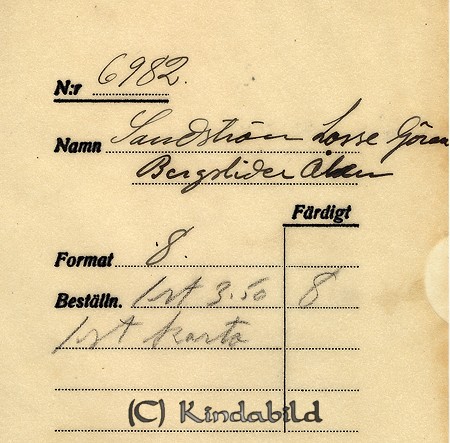 N:r 6982.
Namn Sandström Lasse Göran
Bergslider
Färdigt
Format 8.
Beställn. 1 st 3.50 8
1 st karta
(C) Kindabild